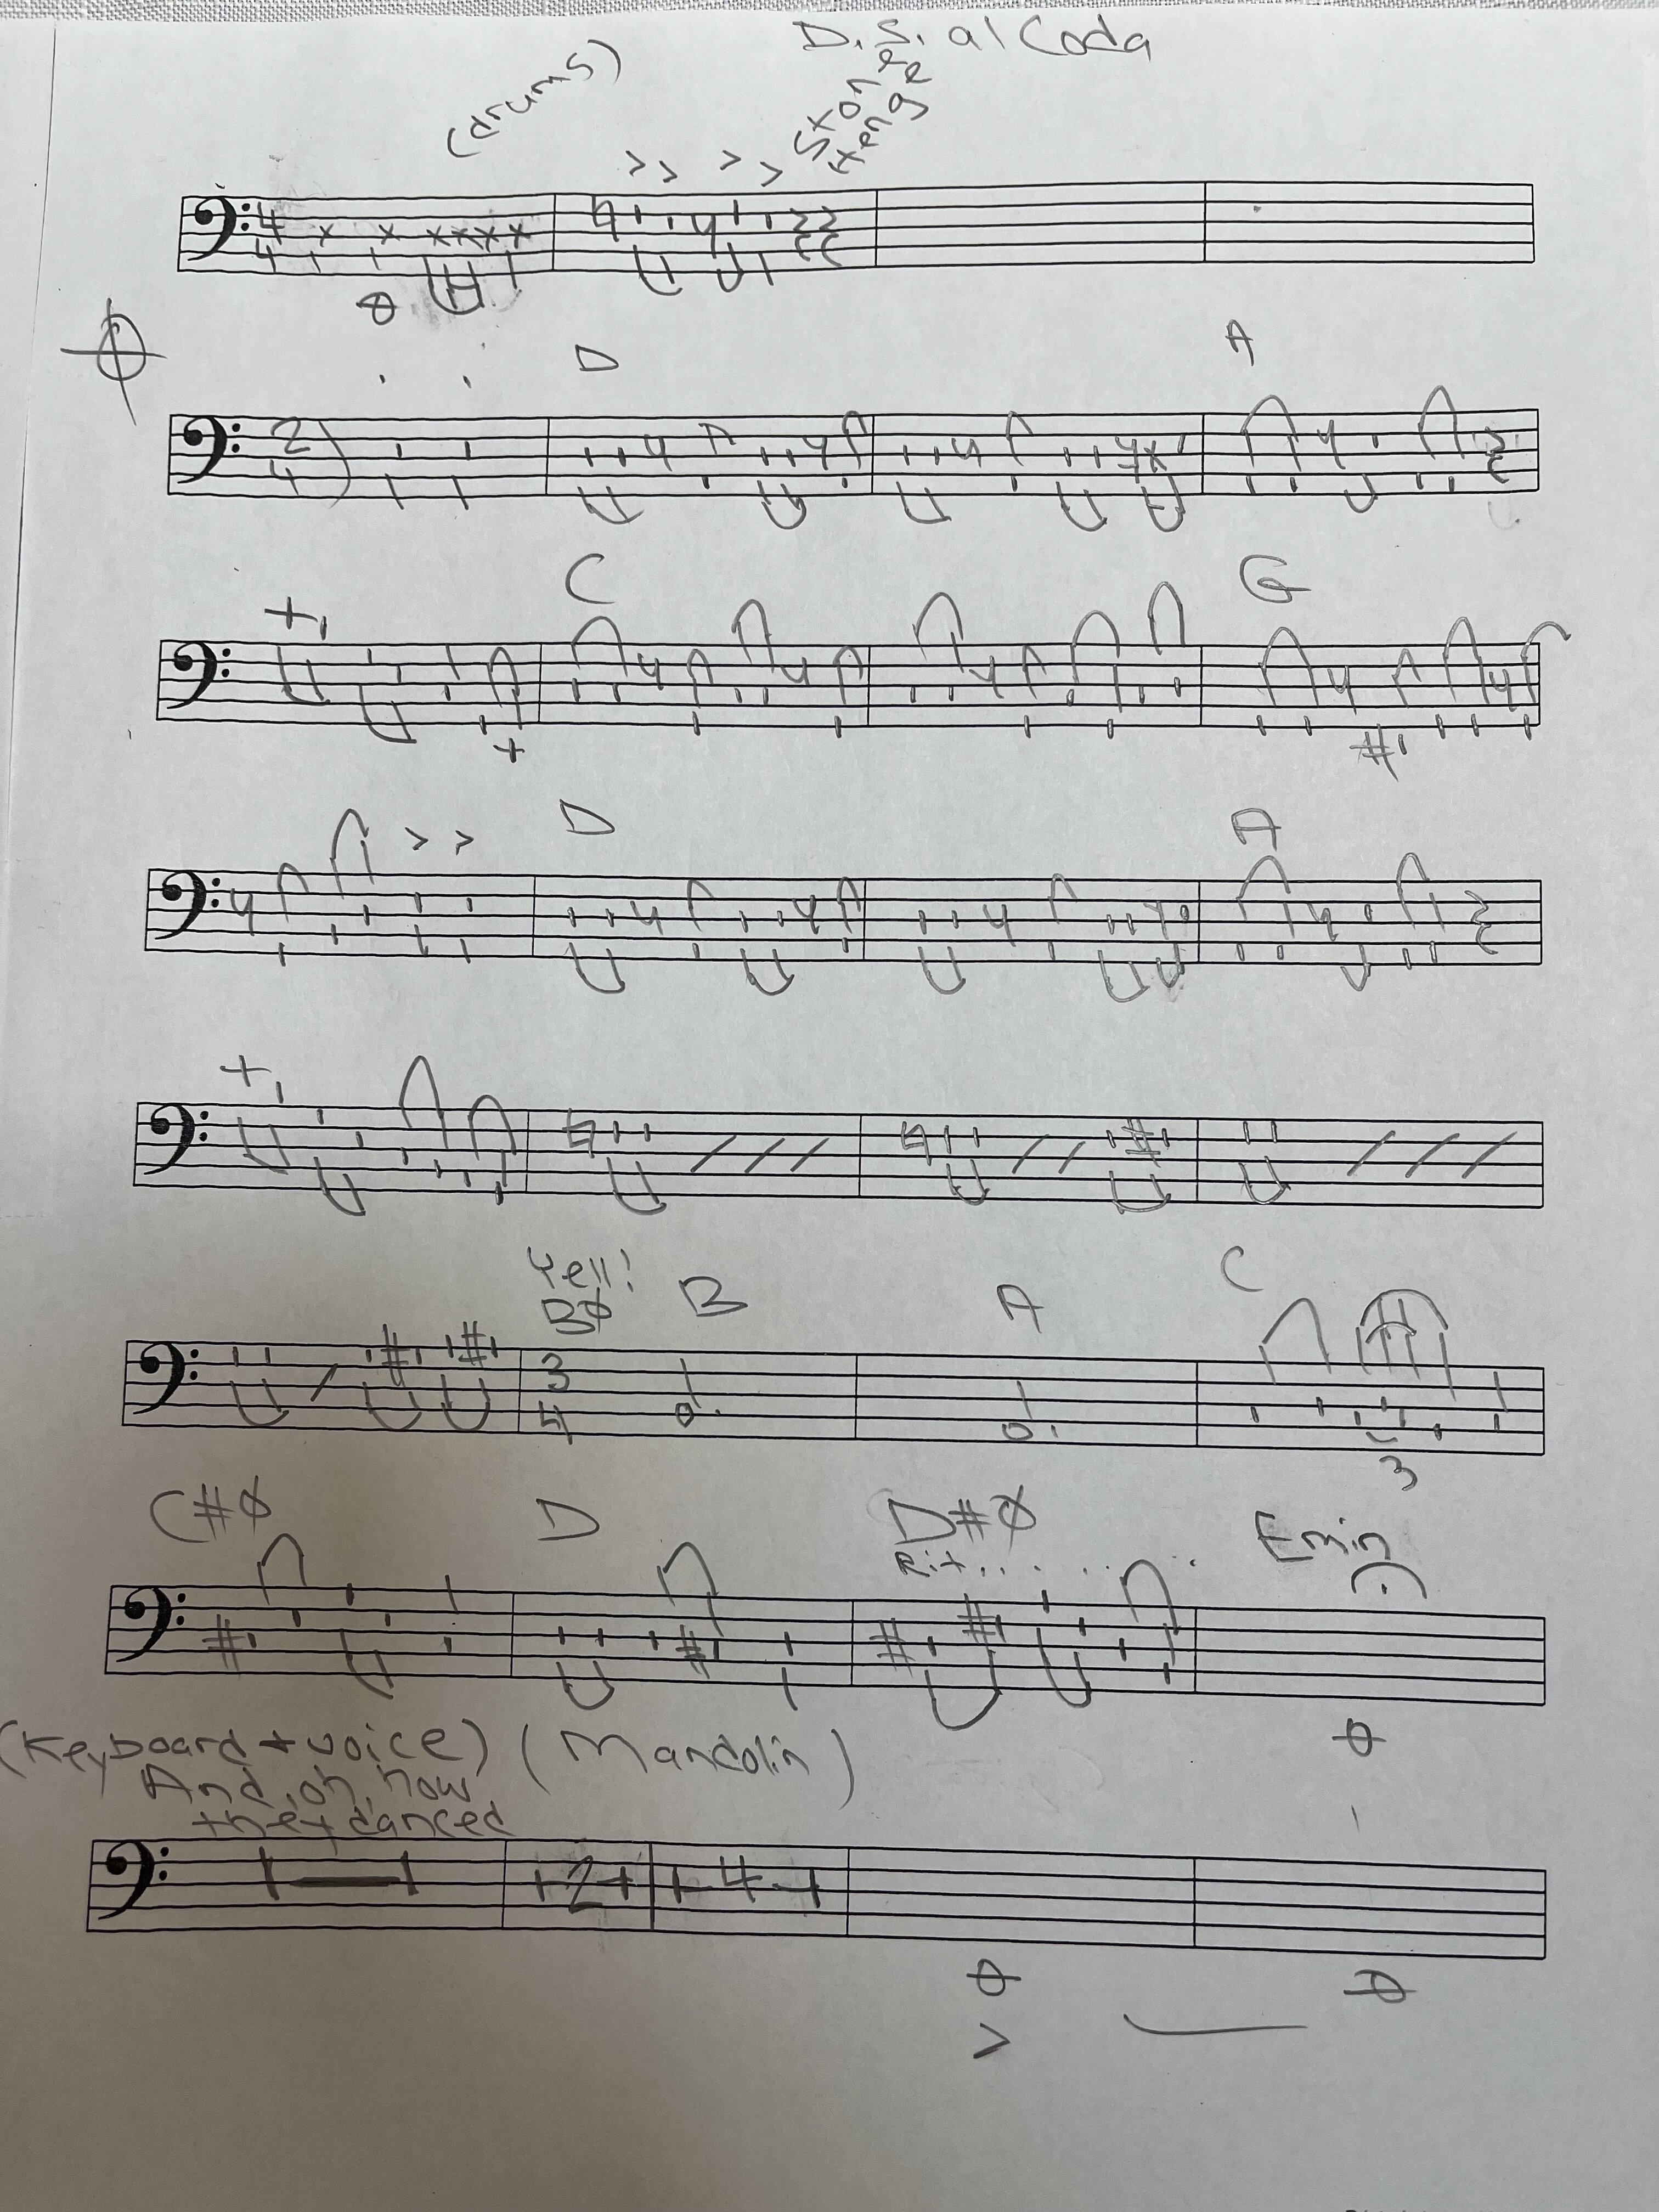 D.S. al Coda
(drums)
Stone
Henge
4
4
D
A
2
4
C
G
D
A
Yell!
BØ B
A
C
3
4
3
C#Ø
D
D#Ø
Rit.......
Emin
(Keyboard + voice) (Mandolin)
And, oh, how
they danced
2
4